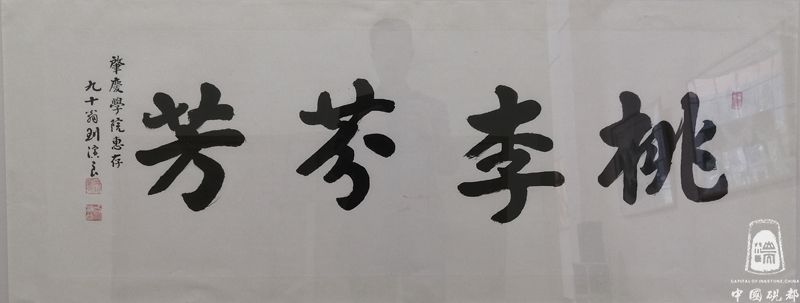 桃李芬芳
肇慶學院惠存
九十翁劉演良
端
CAPITAL OF INKSTONE, CHINA
中國硯都